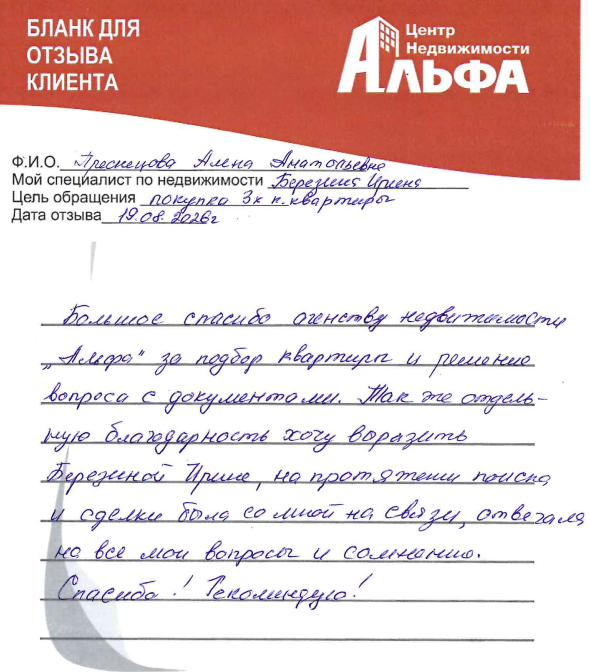 БЛАНК ДЛЯ
ОТЗЫВА
КЛИЕНТА
Центр
Недвижимости
АЛЬФА
Ф.И.О. Преснецова Алена Анатольевна
Мой специалист по недвижимости Березина Ирина
Цель обращения покупка 3к к. квартиры
Дата отзыва 19.08.2026г
Большое спасибо агенству недвижимости
„Альфа" за подбор квартиры и решение
вопроса с документами. Так же отдель-
ную благодарность хочу выразить
Березиной Ирине, на протяжении поиска
и сделки была со мной на связи, отвечала
на все мои вопросы и сомнению.
Спасибо! Рекомендую!